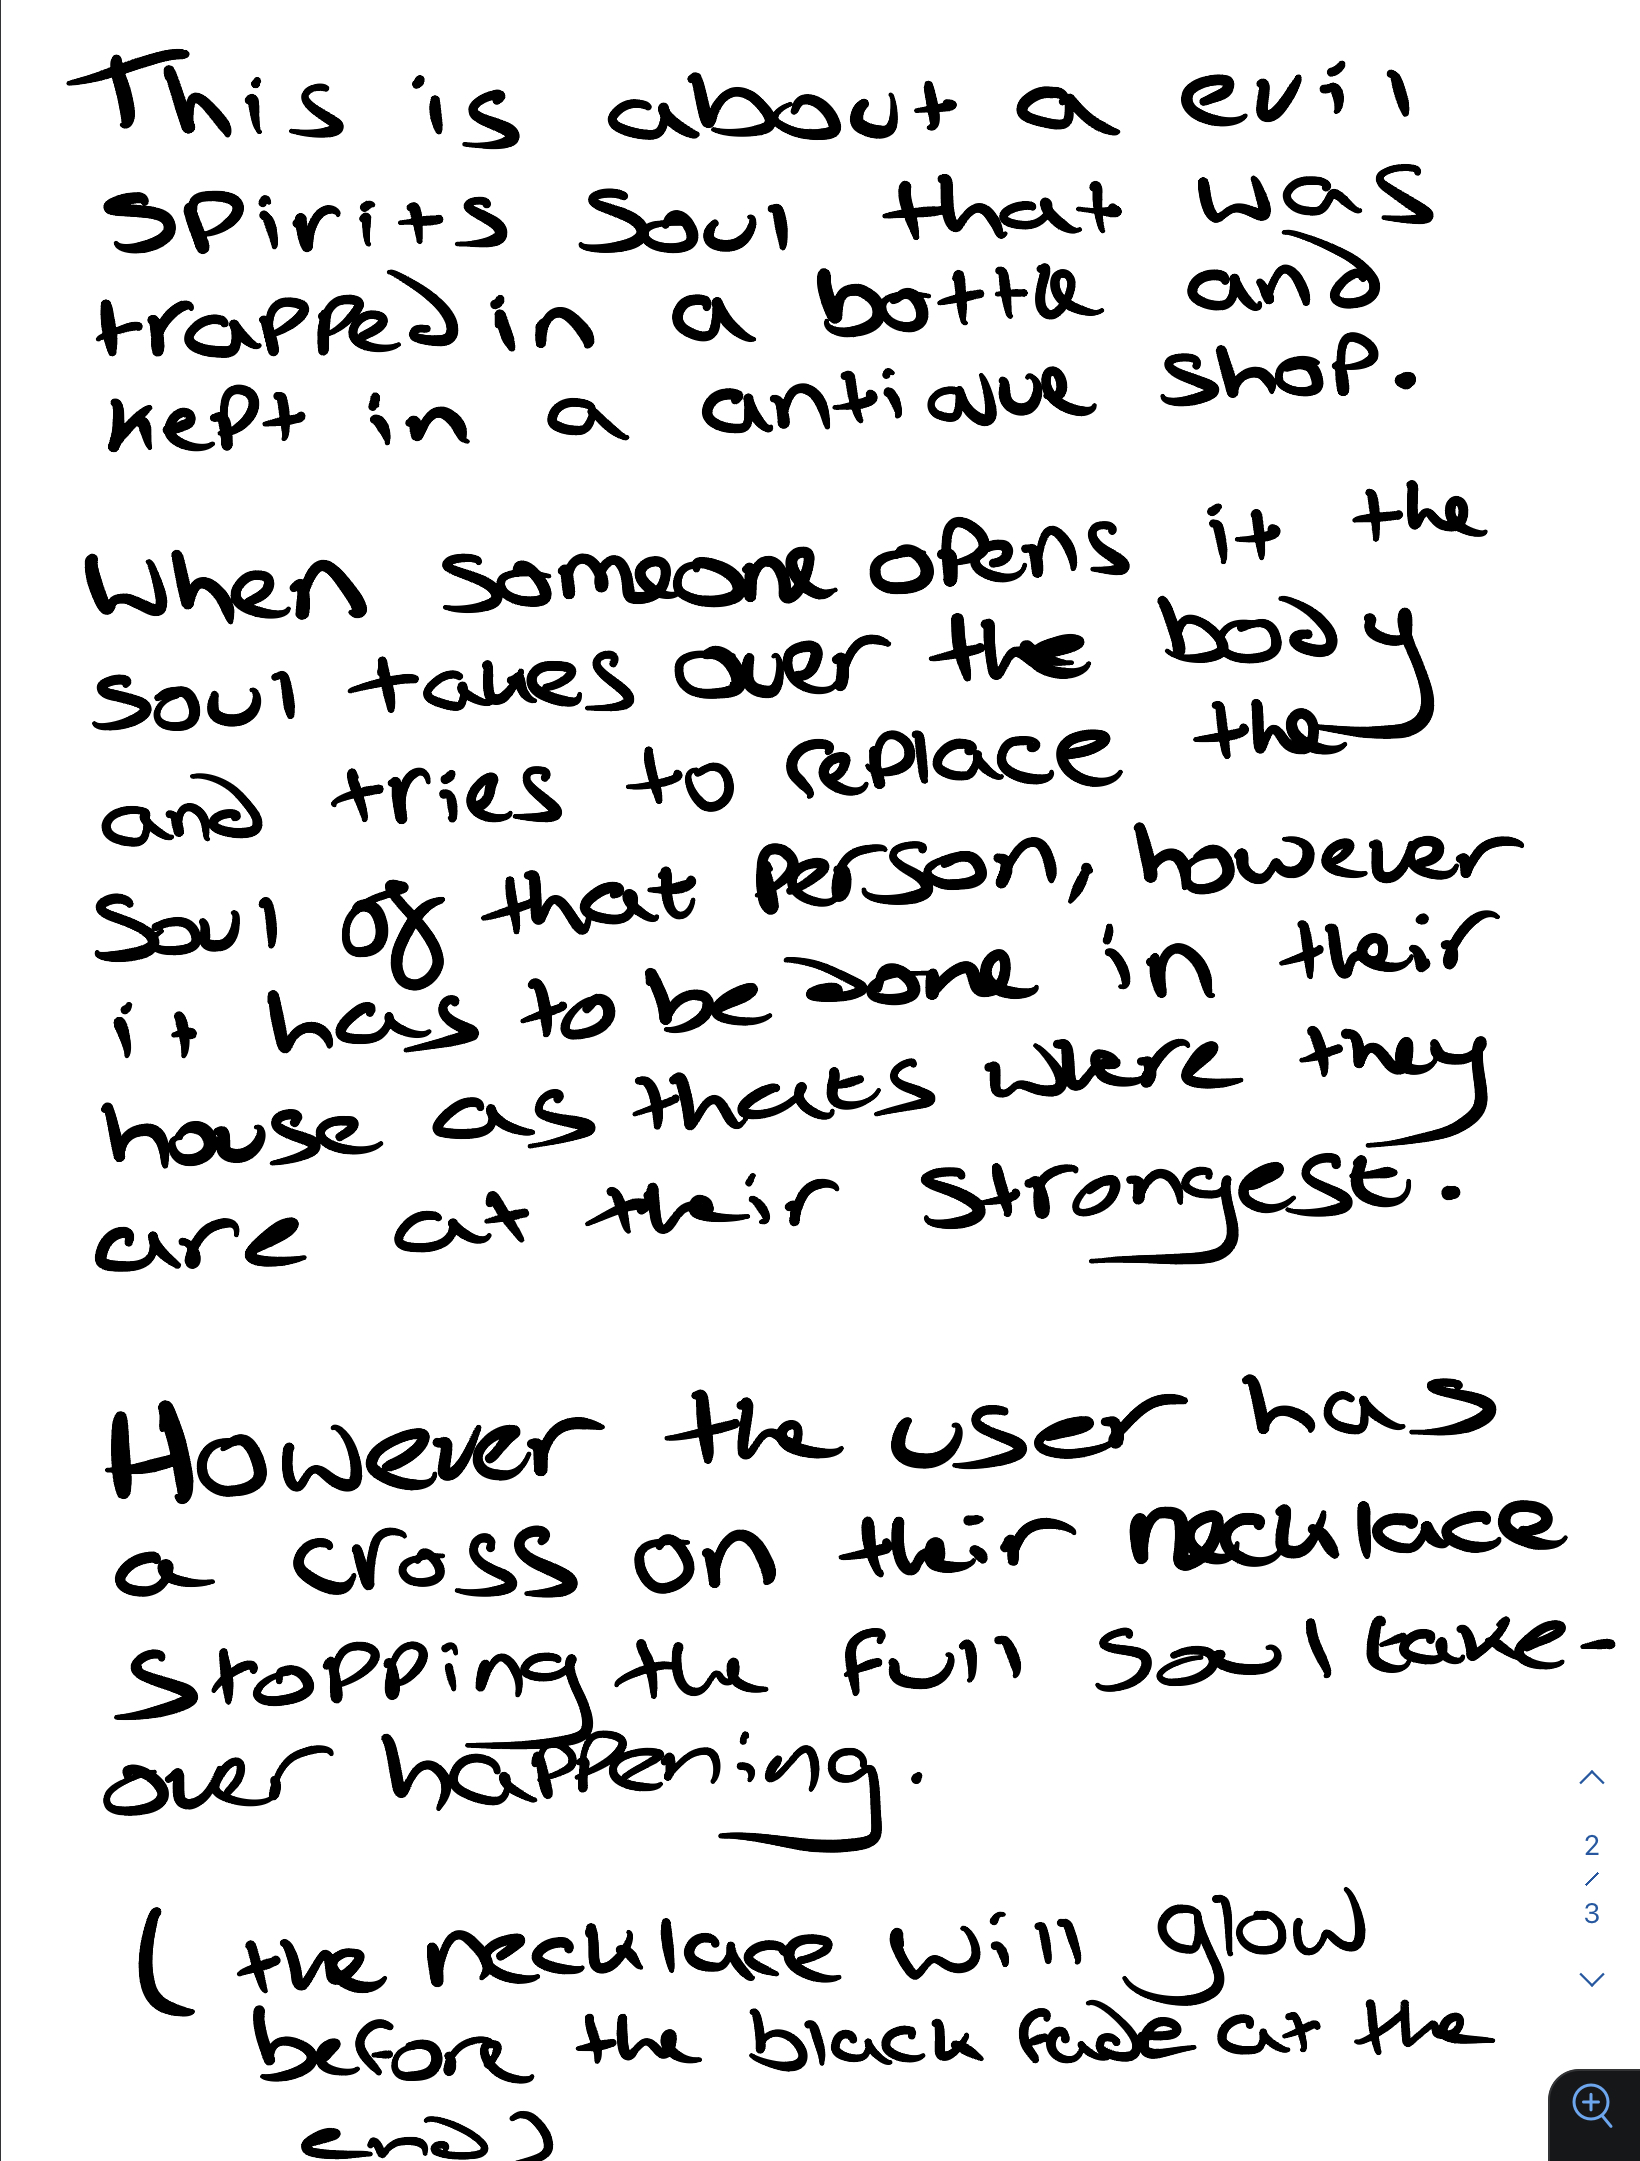 This is about a evil
spirits soul that was
trapped in a bottle and
kept in a antique shop.
When someone opens it the
soul takes over the body
and tries to replace the
soul of that person, however
it has to be done in their
house as thats where they
are at their strongest.
However the user has
a cross on their necklace
stopping the full soul take-
over happening.
( the necklace will glow
before the black fade at the
end)
2
/
3